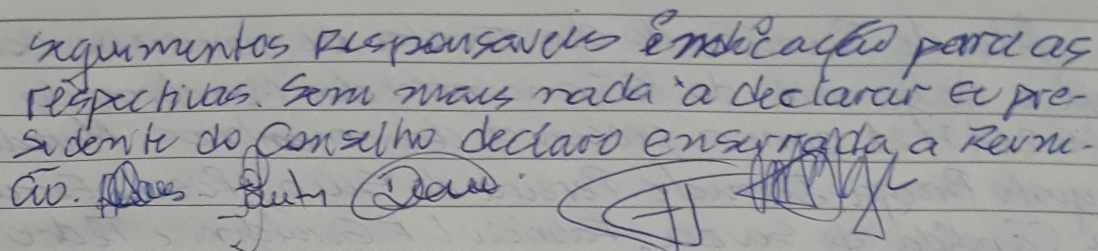 seguimentos responsaveis indicação para as
respectivas. Sem mais nada a declarar eu pre-
sidente do Conselho declaro enserrada a Reuni-
ão.